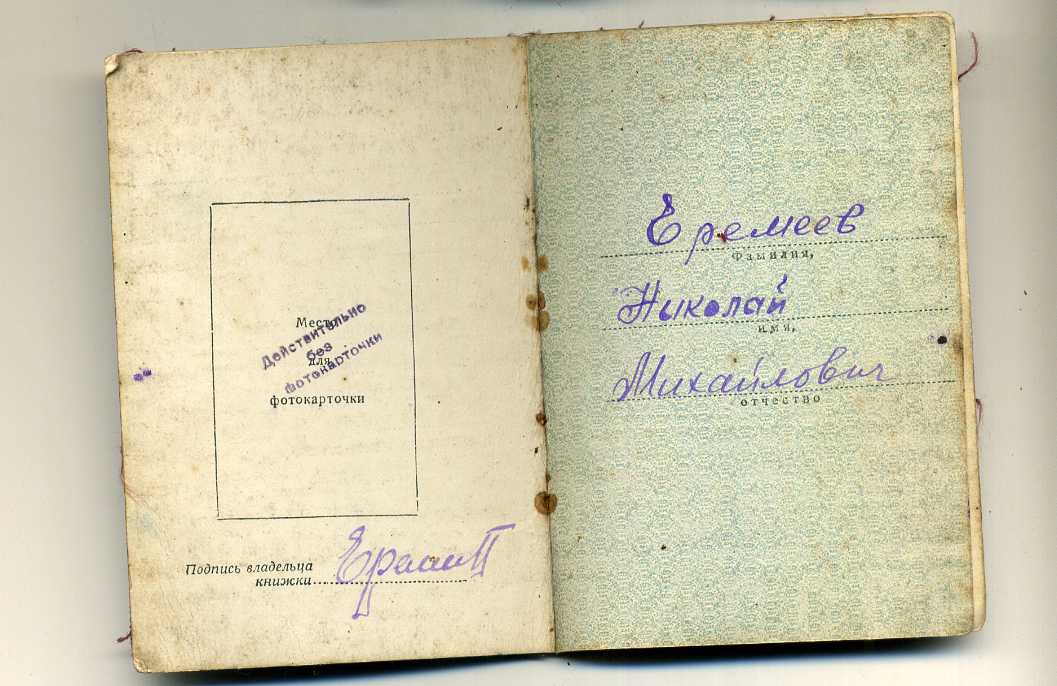 Место
для
фотокарточки
Действительно
без
фотокарточки
Подпись владельца
книжки
Еремеев
Фамилия,
Николай
имя,
Михайлович
отчество